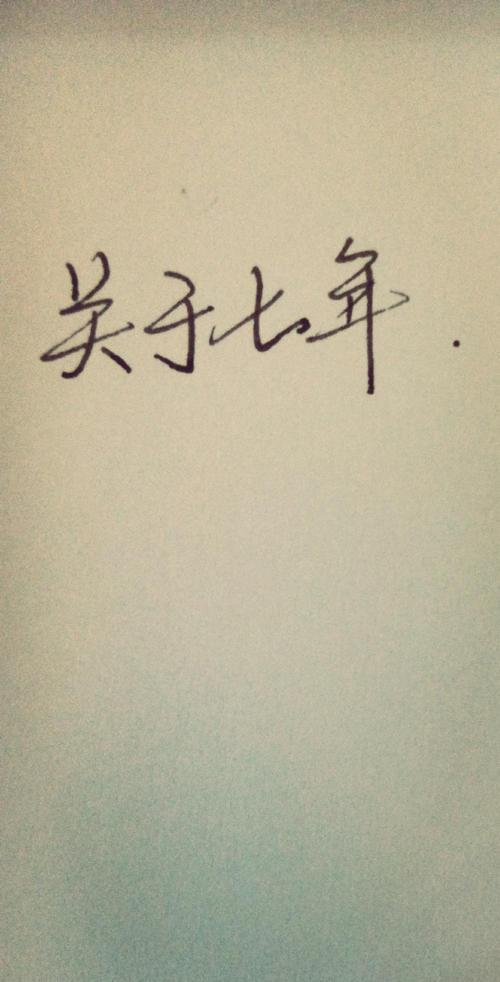 关于七年.